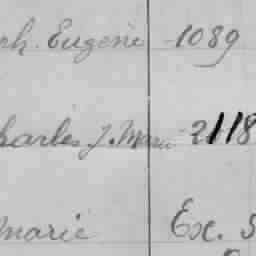 ph. Eugene 1089
harles J. Marie 2118
Marie Ex. S